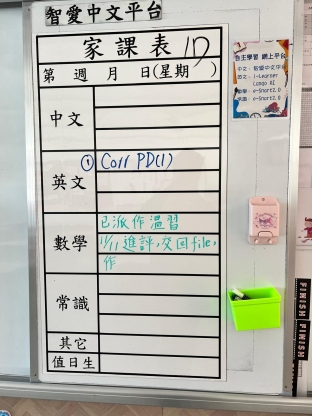 智愛中文平台
家課表 1D
第 週 月 日(星期 )
中文
英文
① Corr PD(1)
數學
已派作溫習
11/11 進評,交回file,
作
常識
其它
值日生
自主學習 網上平台
i-Learner
e-Smart2.0
e-Smart2.0
FINISH
FINISH